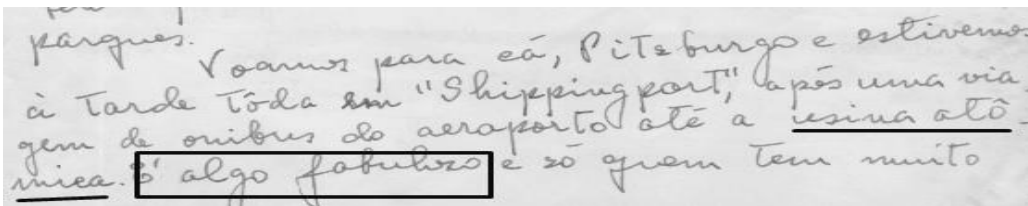 parques.
Voamos para cá, Pitsburgo e estivemos
à Tarde Tôda em "Shippingport", após uma via
gem de onibus do aeroporto até a usina atô-
mica. É algo fabuloso e só quem tem muito